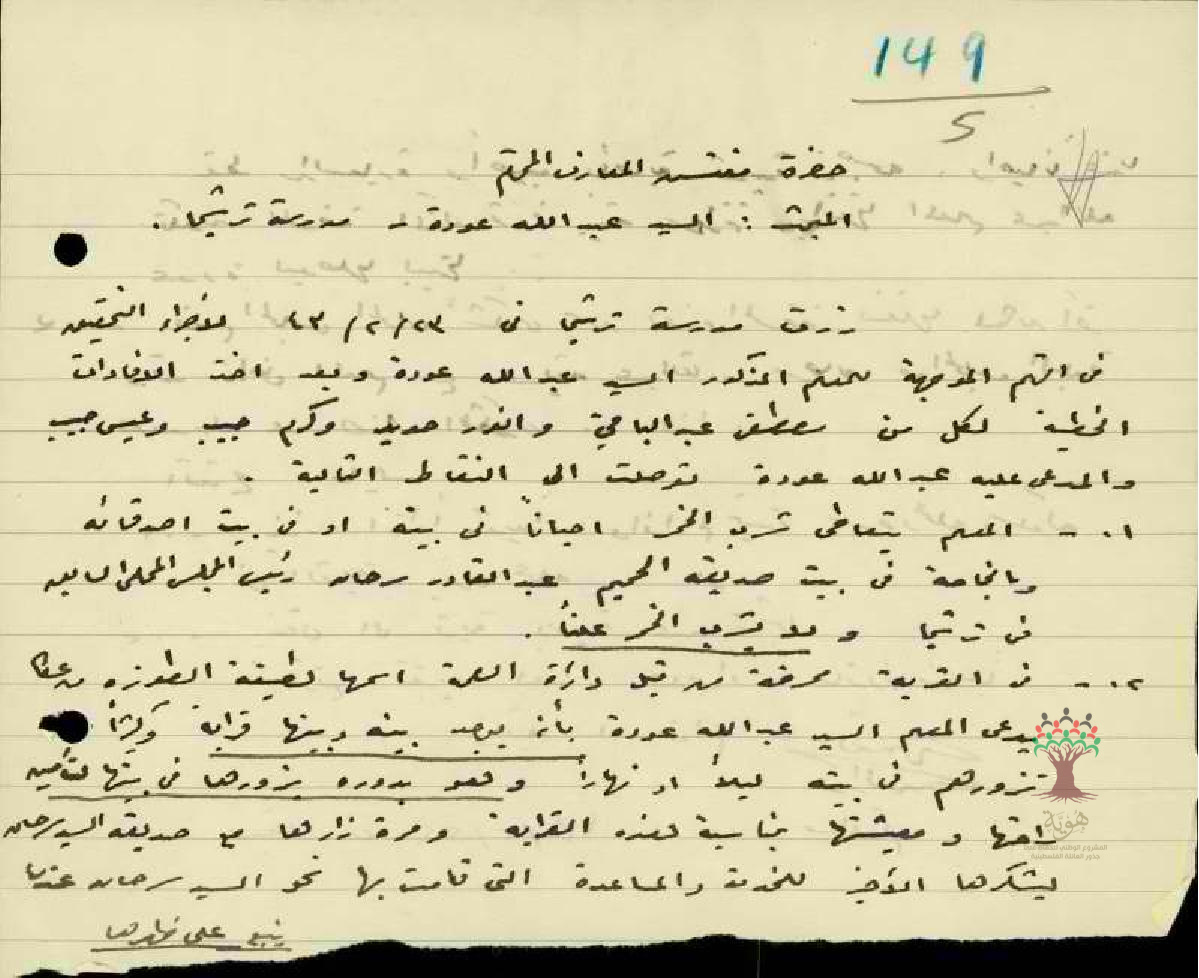 149
5
حضرة مفتش المعارف المحترم
المبحث : السيد عبد الله عودة مدرسة ترشيحا .
زرت مدرسة ترشيحا في ٢٣/٢/٤٣ لاجراء التحقيق
في التهم الموجهة للمعلم المذكور السيد عبد الله عودة وبعد اخذ الافادات
الخطية لكل من مصطفى عبد الباقي وانور حديد وكرم حبيب وعيسى حبيب
والمدعى عليه عبد الله عودة توصلت الى النقاط التالية .
١. - المعلم يتعاطى شرب الخمر احياناً في بيته او في بيت اصدقائه
وبالخاصة في بيت صديقه الحميم عبد القادر سرحان رئيس المجلس المحلي السابق
في ترشيحا ولا يشرب الخمر علناً .
٢. - في القرية ممرضة من قبل دائرة الصحة اسمها لطيفة من عكا
يدعي المعلم السيد عبد الله عودة بأنه يوجد بينه وبينها قرابة وكثيراً
تزورهم في بيته ليلاً او نهاراً وهو بدوره يزورها في بيتها لتأمين
راحتها ومعيشتها بمناسبة هذه القرابة ومرة زارها مع صديقه السيد سرحان
ليشكرها الأخير للخدمة والمساعدة التي قامت بها نحو السيد سرحان عندما
يتبع على ظهرها
هوية
المشروع الوطني للحفاظ على
جذور العائلة الفلسطينية